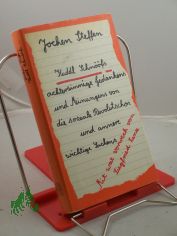 Jochen Steffen
Kuddl Schnööfs
achtersinnige Gedankens
und Meinungens von
die sozeale Revolutschon
und annere
wichtige Sachens
Mit was vorweg von
Siegfried Lenz